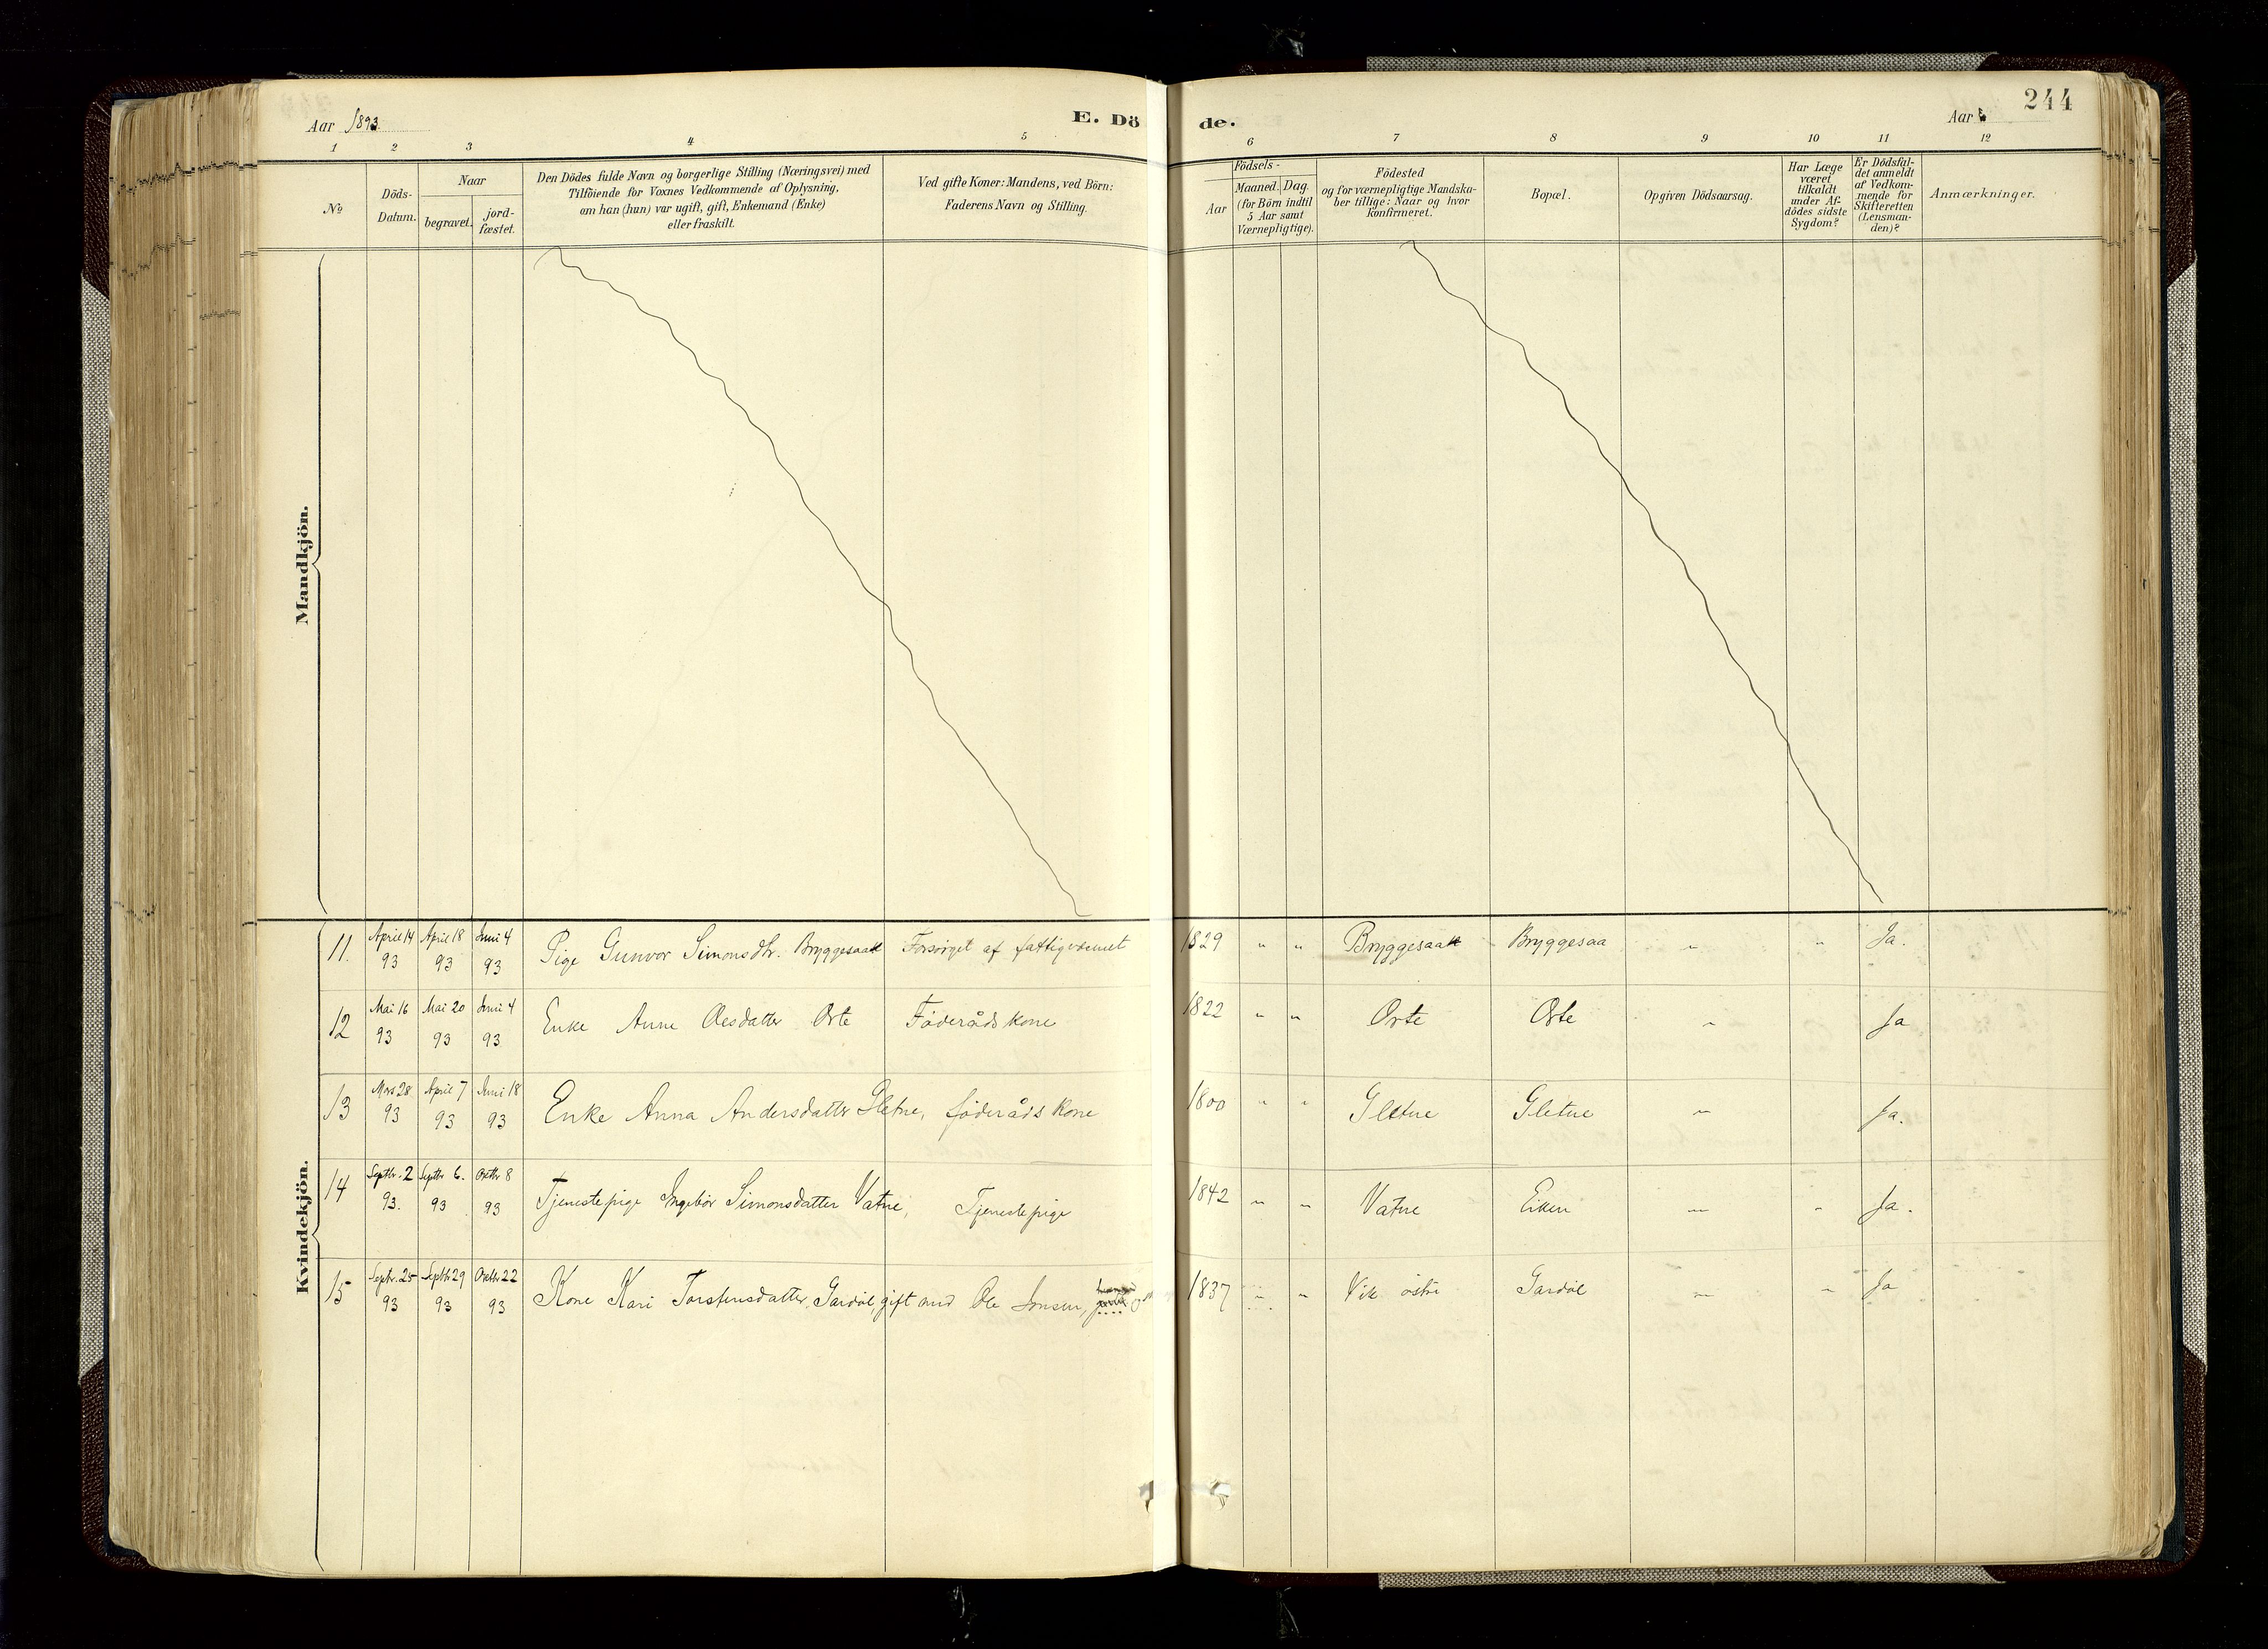 Aar 1893.
E. Dö de.
Aar
244
1 2 3 4 5 6 7 8 9 10 11 12
No
Döds-Datum.
Naar
begravet.
jord-fæstet.
Den Dödes fulde Navn og borgerlige Stilling (Næringsvei) med
Tilföiende for Voxnes Vedkommende af Oplysning,
om han (hun) var ugift, gift, Enkemand (Enke)
eller fraskilt.
Ved gifte Koner: Mandens, ved Börn:
Faderens Navn og Stilling.
Födsels-
Aar
Maaned. Dag.
(for Börn indtil
5 Aar samt
Værnepligtige).
Födested
og for værnepligtige Mandska-
ber tillige: Naar og hvor
konfirmeret.
Bopæl.
Opgiven Dödsaarsag.
Har Læge
været
tilkaldt
under Af-
dödes sidste
Sygdom?
Er Dödsfal-
det anmeldt
af Vedkom-
mende for
Skifteretten
(Lensman-
den)?
Anmærkninger.
Mandkjön.
Kvindekjön.
11. April 14 93 April 18 93 Juni 4 93 Pige Gunvor Simonsdtr. Bryggesaak Forsörget af fattigvæsnet 1829 " " Bryggesaak Bryggesaa " " Ja.
12 Mai 16 93 Mai 20 93 Juni 4 93 Enke Anne Olesdatter Orte Föderåds kone 1822 " " Orte Orte " Ja
13 Mars 28 93 April 7 93 Juni 18 93 Enke Anna Andersdatter Gletne, föderåds kone 1800 " " Gletne Gletne " Ja.
14 Septbr. 2 93. Septbr 6. 93 Oktbr 8 93 Tjenestepige Ingebor Simonsdatter Vatne, Tjenestepige 1842 " " Vatne Eiken " " Ja.
15 Septr. 25 93 Septbr 29 93 Oktbr 22 93 Kone Kari Torstensdatter, Gardöl, gift med Ole Jonsen, 1837 " " Vik östre Gardöl " " Ja